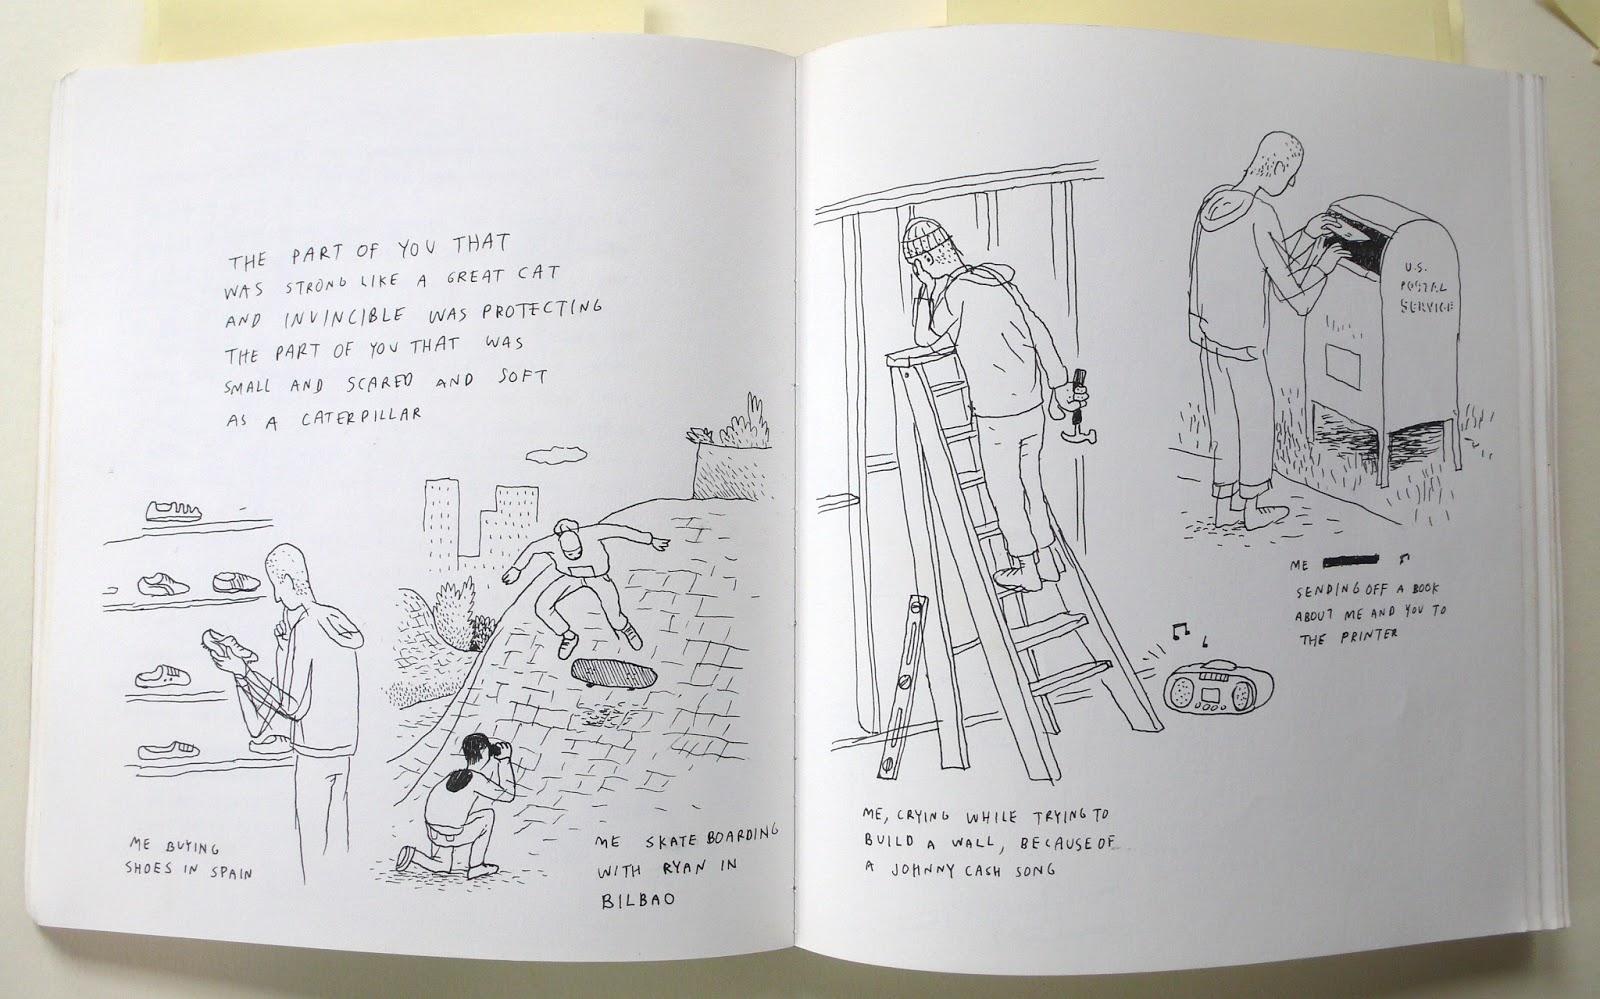 THE PART OF YOU THAT
WAS STRONG LIKE A GREAT CAT
AND INVINCIBLE WAS PROTECTING
THE PART OF YOU THAT WAS
SMALL AND SCARED AND SOFT
AS A CATERPILLAR
ME BUYING
SHOES IN SPAIN
ME SKATEBOARDING
WITH RYAN IN
BILBAO
ME, CRYING WHILE TRYING TO
BUILD A WALL, BECAUSE OF
A JOHNNY CASH SONG
U.S.
POSTAL
SERVICE
ME
SENDING OFF A BOOK
ABOUT ME AND YOU TO
THE PRINTER